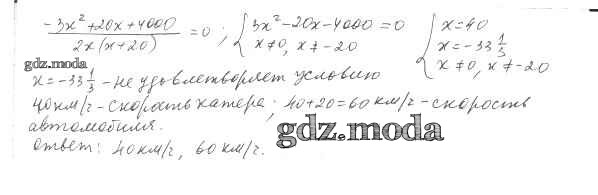 (-3x²+20x+4000)/(2x(x+20)) = 0 ; { 3x²-20x-4000=0 { x=40
x≠0, x≠-20 x=-33 1/3
x≠0, x≠-20
gdz.moda
x=-33 1/3 - не удовлетворяет условию
40 км/г - скорость катера; 40+20=60 км/г - скорость
автомобиля.
gdz.moda
ответ: 40 км/г, 60 км/г.